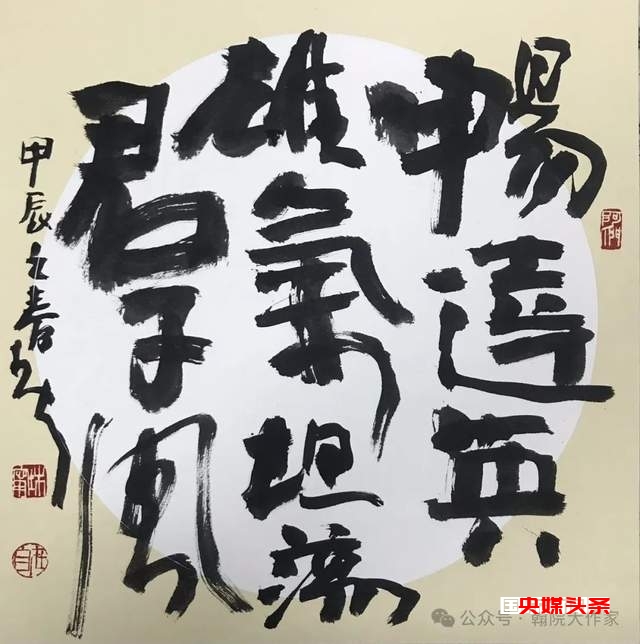 暢達英
雄氣坦蕩
君子風
甲辰春
国央媒头条
公众号·翰院大作家